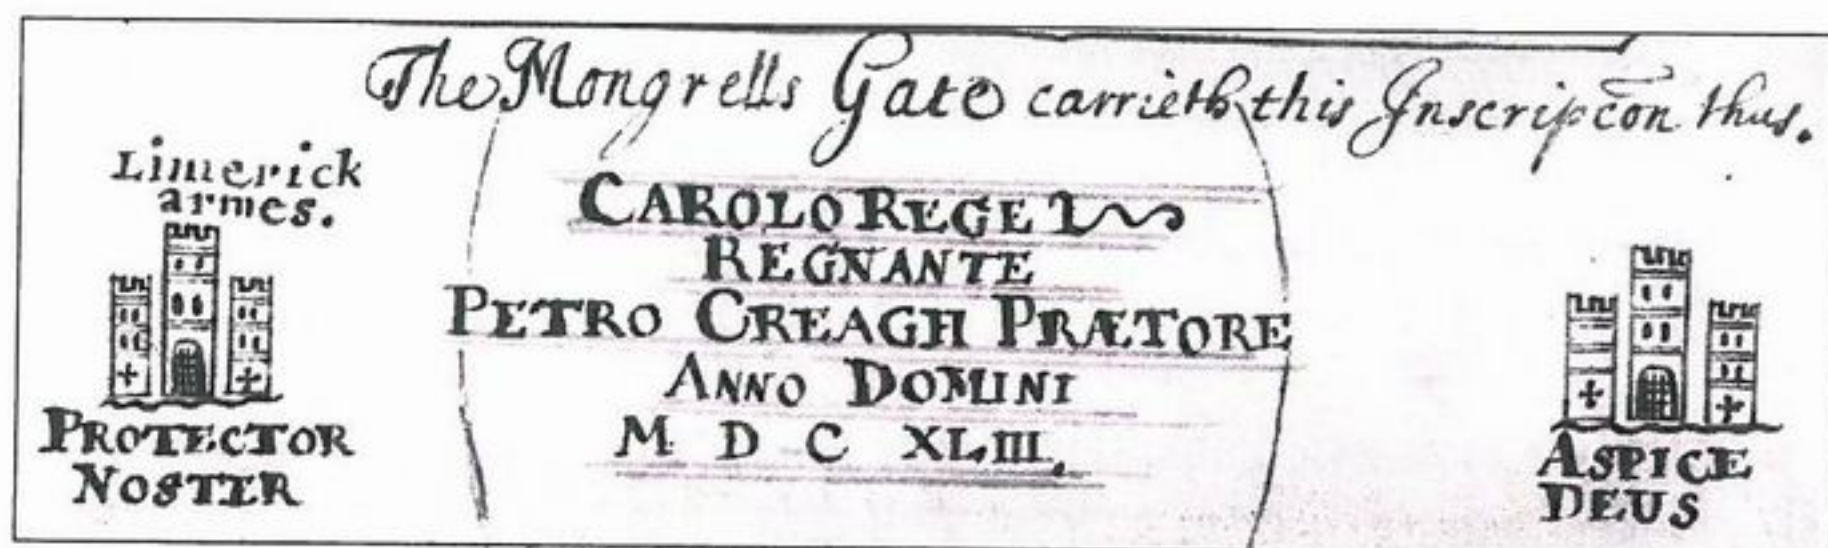 The Mongrells Gate carrieth this Inscripc̄on thus.
Limerick
armes.
PROTECTOR
NOSTER
CAROLO REGE
REGNANTE
PETRO CREAGH PRÆTORE
ANNO DOMINI
M D C XLIII.
ASPICE
DEUS